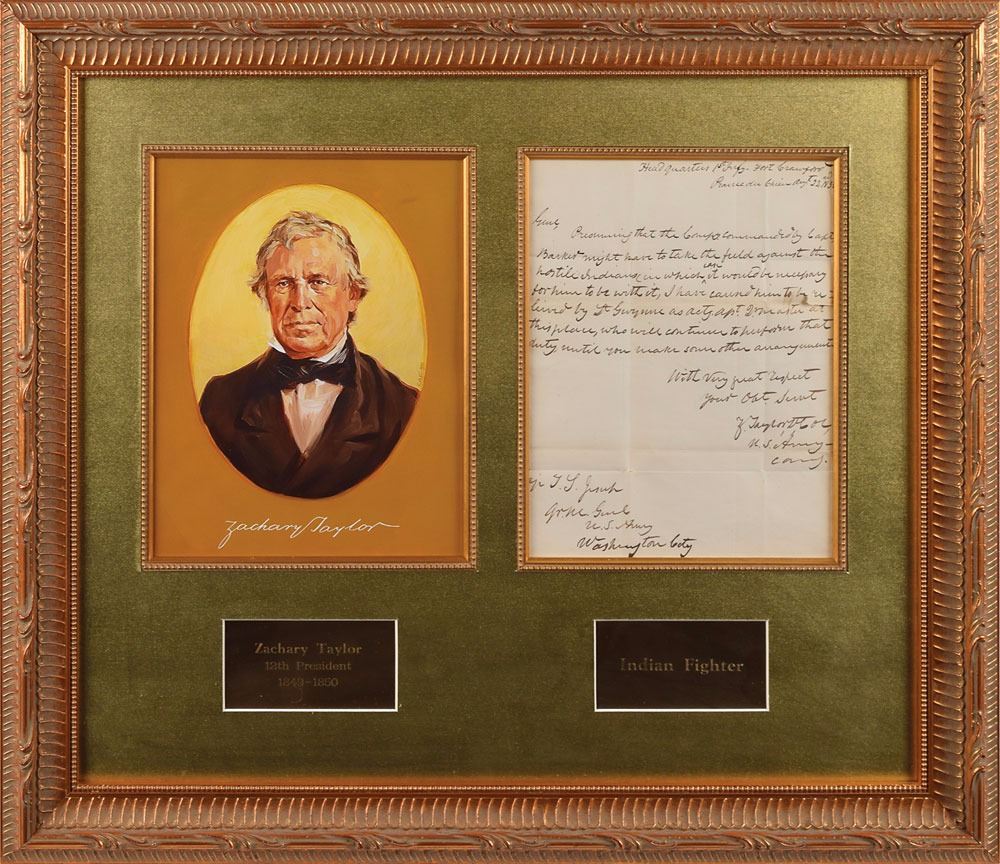 Zachary Taylor
Headquarters 1st Infy. Fort Crawford
Prairie du Chien Augt. 22nd
Genl
Presuming that the Comp. commanded by Capt
Barker might have to take the field against the
hostile Indians, in which case it would be necessary
for him to be with it, I have caused him to be re-
lieved by Lt Gwynne as actg asst. Qr master at
this place, who will continue to perform that
duty until you make some other arrangement
With very great respect
Your Obt Servt
Z. Taylor Col
U.S. Army
Comg.
T. S. Jesup
Qr M Genl
U.S. Army
Washington City
Zachary Taylor
12th President
1849-1850
Indian Fighter